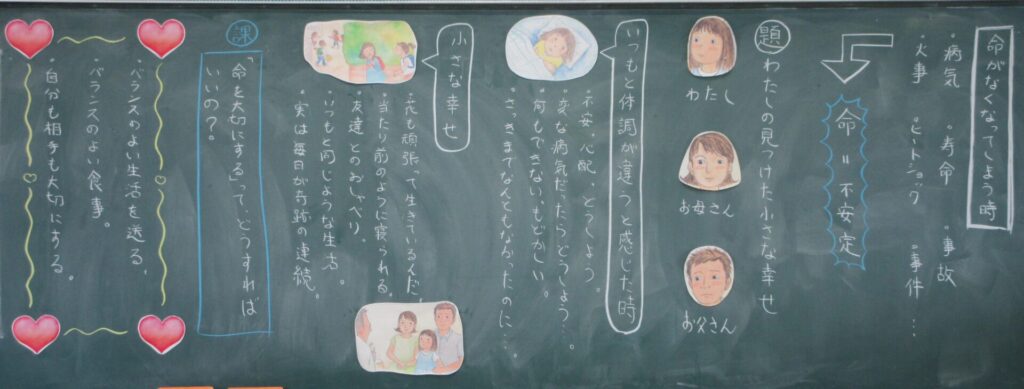 命がなくなってしまう時
・病気 ・寿命 ・事故
・火事 ・ヒートショック ・事件…
命=不安定
題 わたしの見つけた小さな幸せ
わたし
お母さん
お父さん
いつもと体調が違うと感じた時
・不安、心配、どうしよう。
・変な病気だったらどうしよう…。
・何もできない、もどかしい。
・さっきまでなんともなかったのに…。
小さな幸せ
・花も頑張って生きているんだ。
・当たり前のように寝られる。
・友達とのおしゃべり。
・いつもと同じような生活。
・実は毎日が奇跡の連続。
課
「命を大切にする」って、どうすれば
いいの?。
・バランスのよい生活を送る。
・バランスのよい食事。
・自分も相手も大切にする。